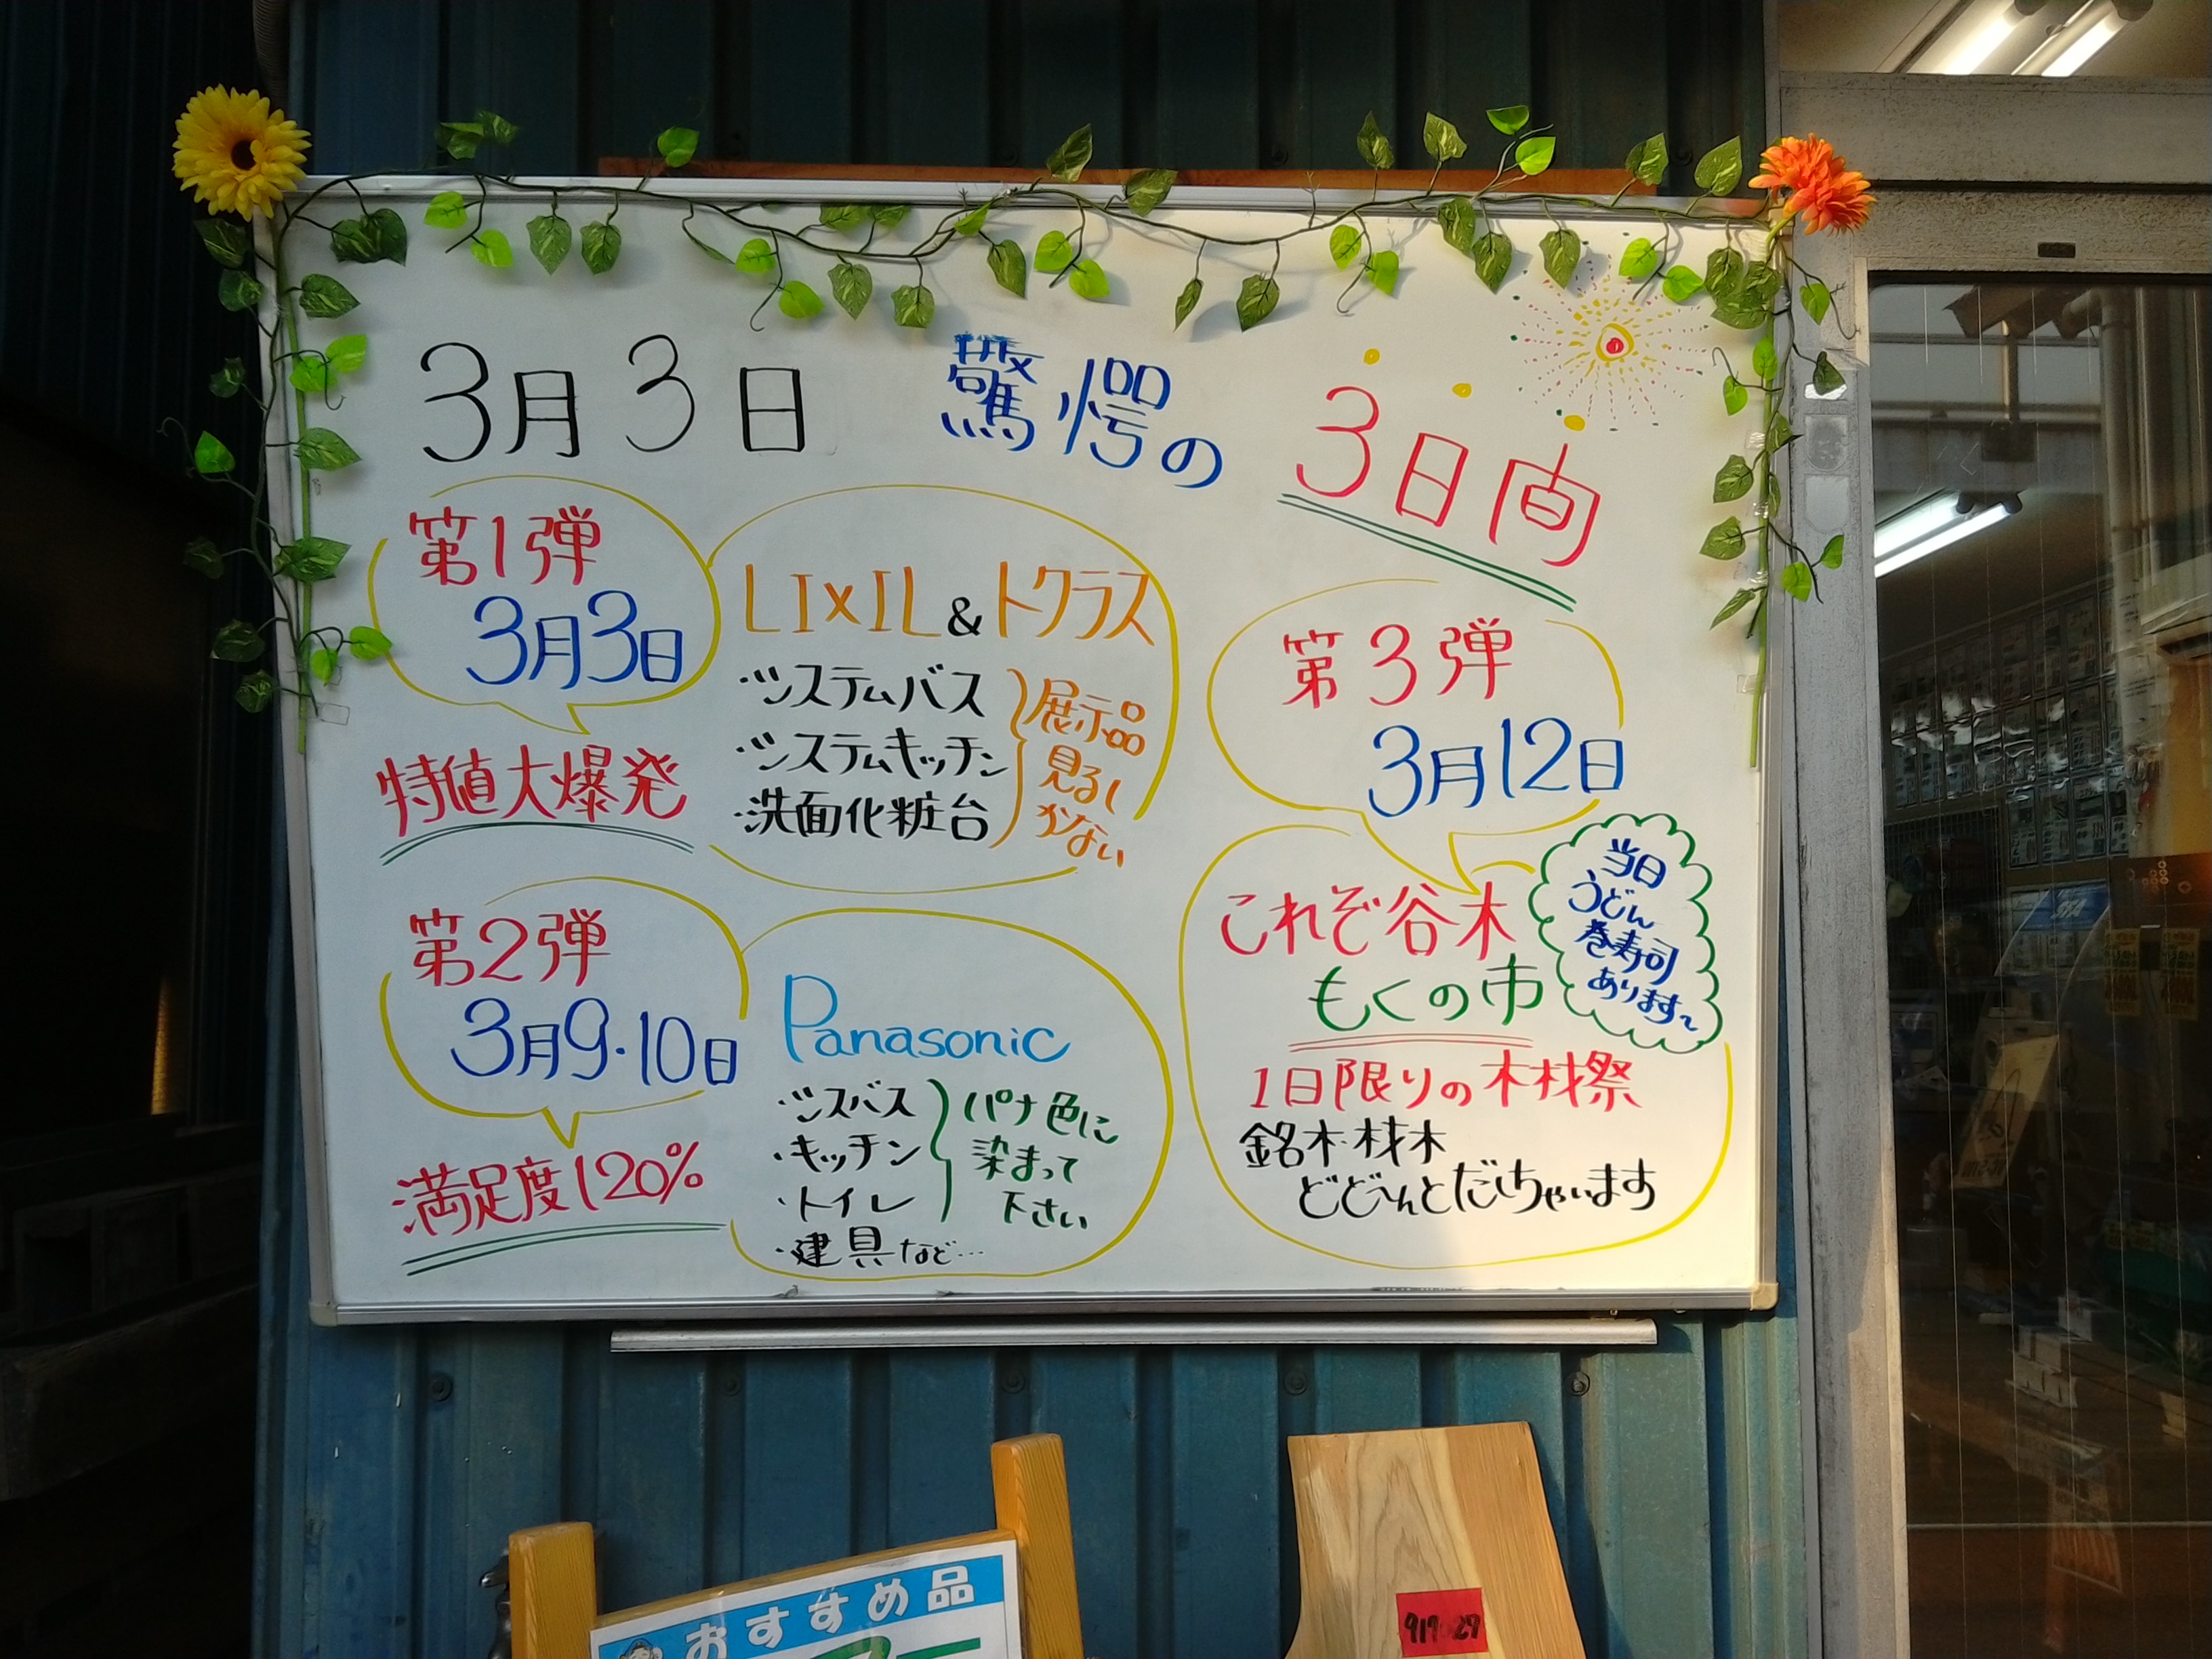 3月3日 驚愕の 3日间
第1弾
3月3日
特値大爆発
LIXIL&トクラス
・システムバス
・システムキッチン
・洗面化粧台
展示品
見るし
かない
第2弾
3月9・10日
満足度120%
Panasonic
・シスバス
・キッチン
・トイレ
・建具など…
パナ色に
染まって
下さい
第3弾
3月12日
これぞ谷木
もくの市
当日
うどん
巻寿司
あります~
1日限りの木材祭
銘木・材木
どど~んとだしちゃいます
おすすめ品